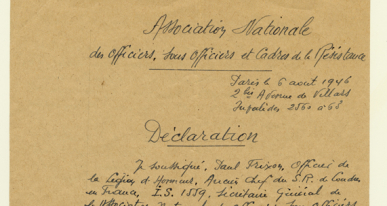 Association Nationale
des Officiers, Sous Officiers et Cadres de la Résistance
Paris le 6 août 1946
2 bis Avenue de Villars
Invalides 25
Déclaration
Je soussigné, Paul Frison, Officier de
la Légion d'Honneur, Ancien Chef du S.R. de Londres
en France, I.S. 1559, Secrétaire Général de